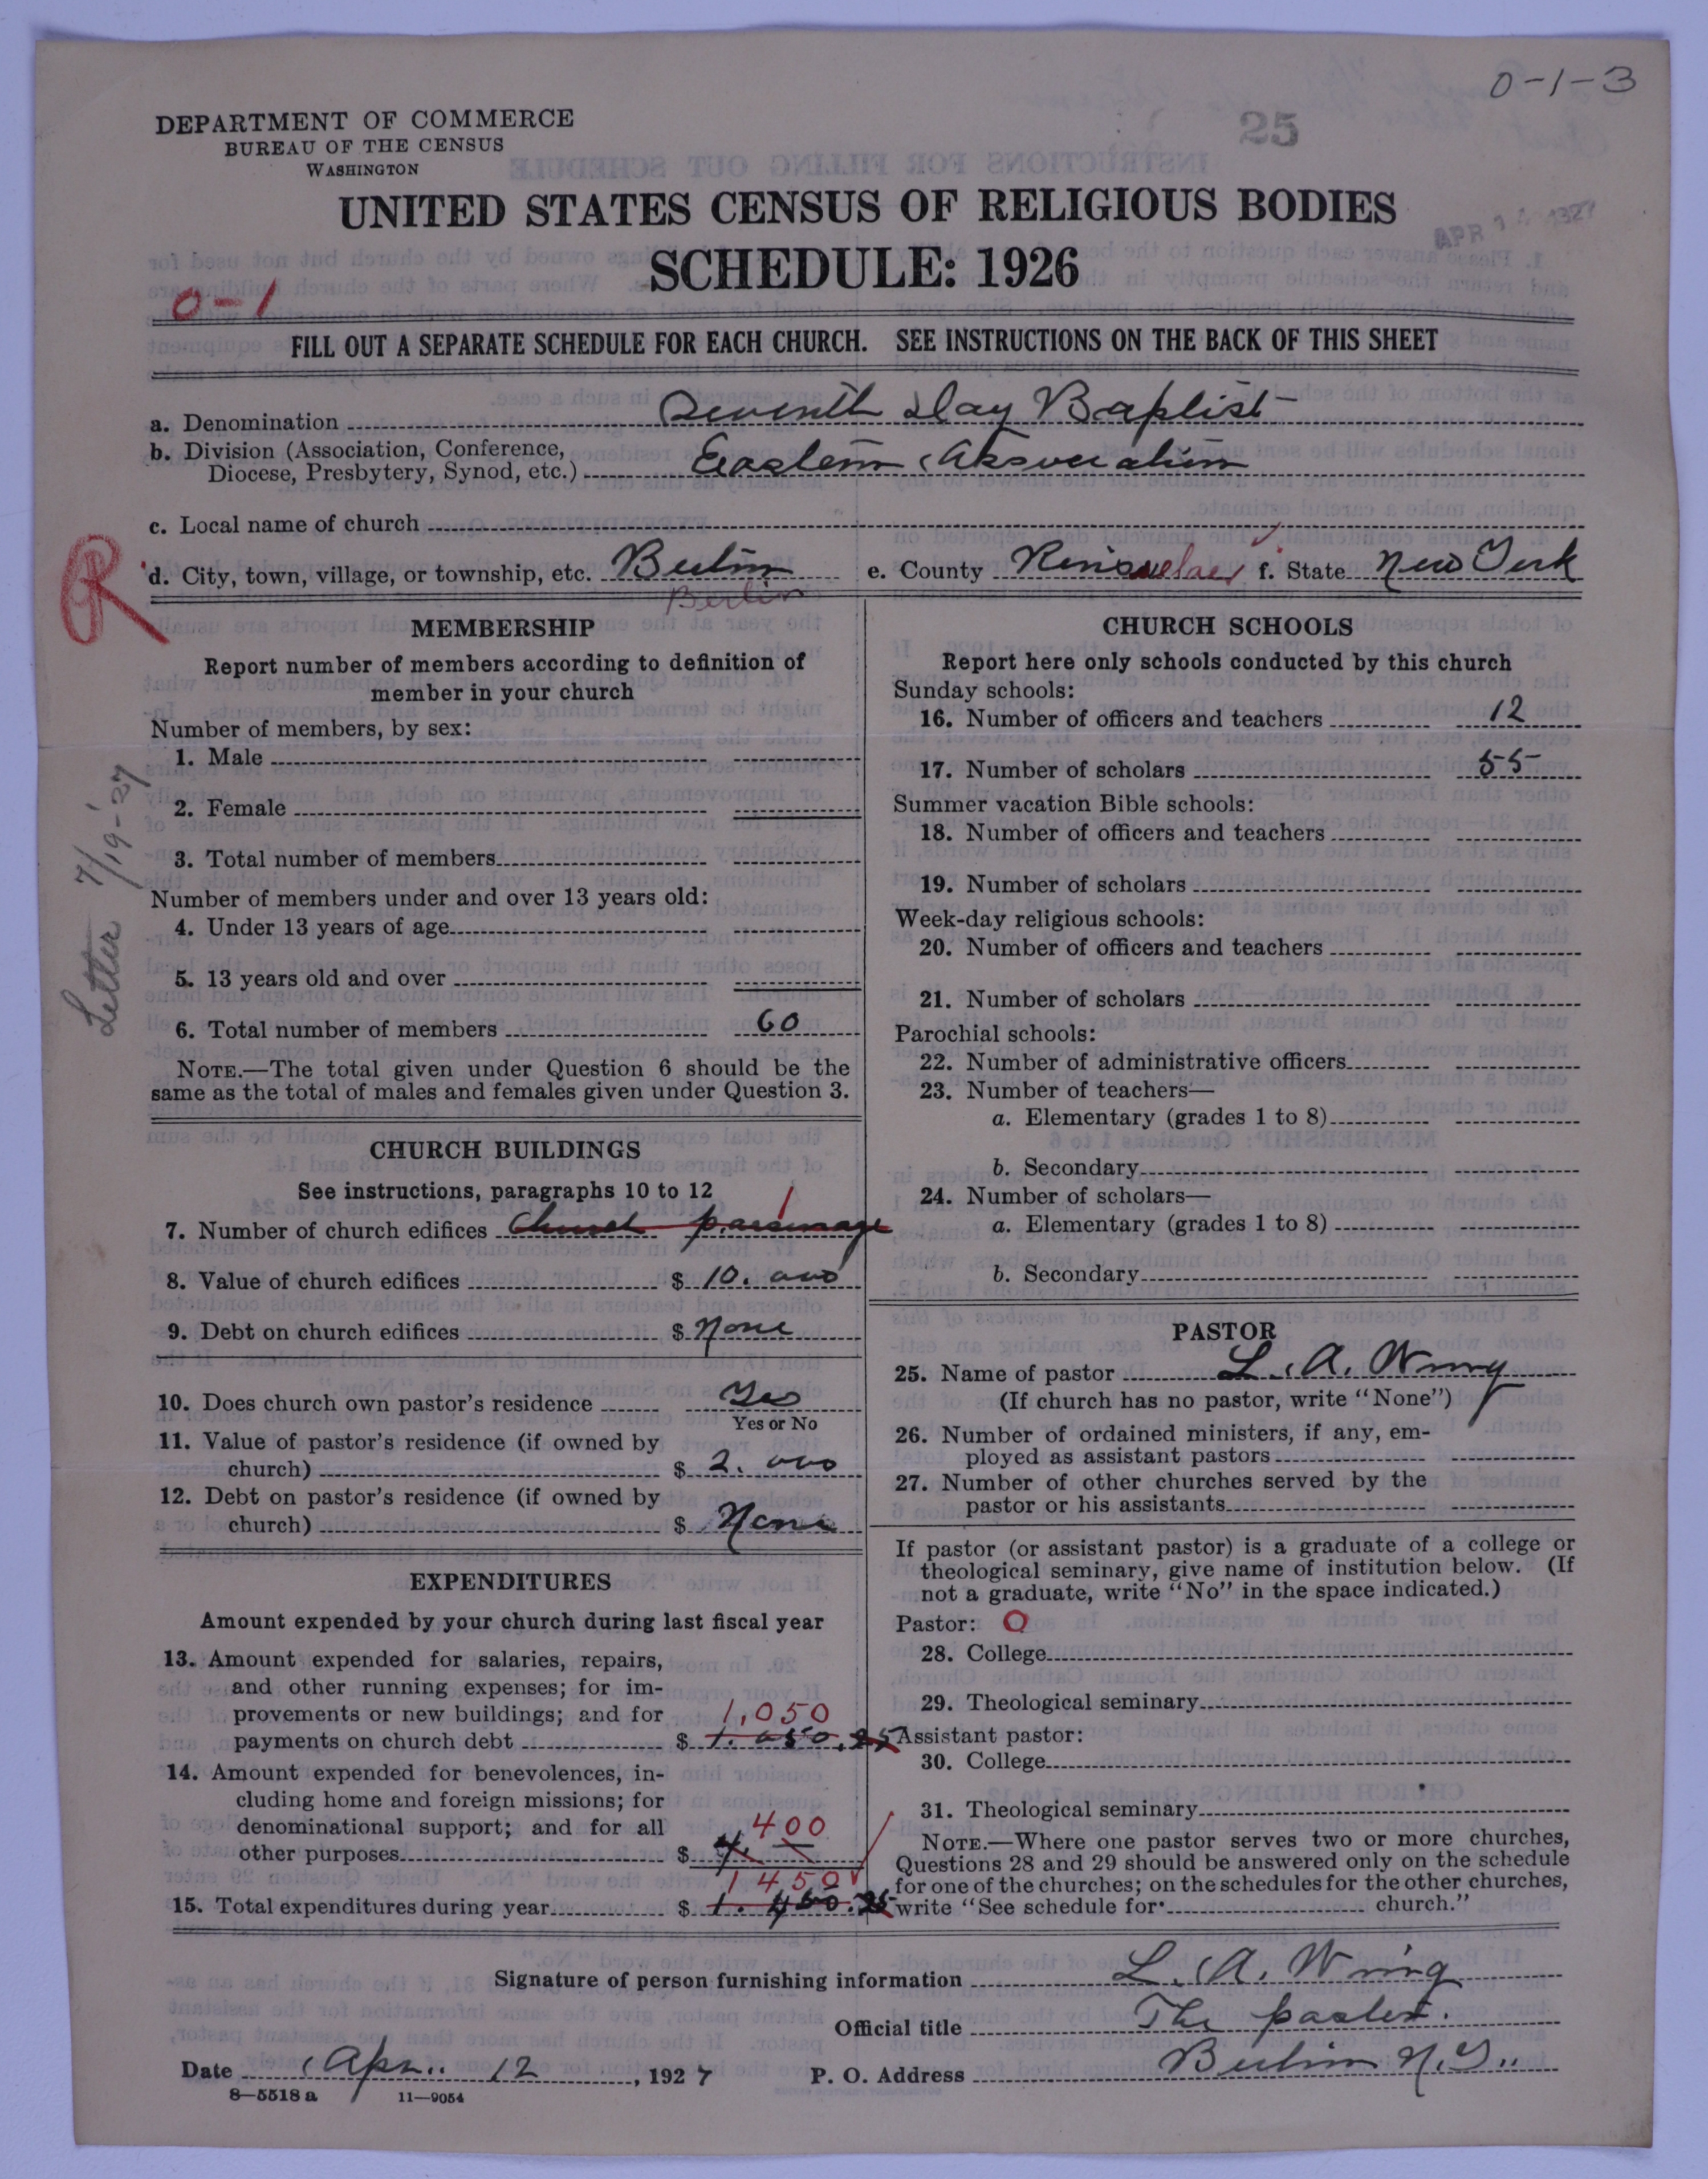 0-1-3
DEPARTMENT OF COMMERCE
BUREAU OF THE CENSUS
WASHINGTON
25
UNITED STATES CENSUS OF RELIGIOUS BODIES
SCHEDULE: 1926
APR 1927
0-1
FILL OUT A SEPARATE SCHEDULE FOR EACH CHURCH. SEE INSTRUCTIONS ON THE BACK OF THIS SHEET
a. Denomination Seventh Day Baptist
b. Division (Association, Conference,
Diocese, Presbytery, Synod, etc.) Eastern Association
c. Local name of church
R
d. City, town, village, or township, etc. Berlin e. County Rensselaer f. State New York
Berlin
MEMBERSHIP
Report number of members according to definition of
member in your church
Number of members, by sex:
1. Male
2. Female
3. Total number of members
Number of members under and over 13 years old:
4. Under 13 years of age
5. 13 years old and over
6. Total number of members 60
NOTE.—The total given under Question 6 should be the
same as the total of males and females given under Question 3.
Letter 7/19-'27
CHURCH BUILDINGS
See instructions, paragraphs 10 to 12
1
7. Number of church edifices Church parsonage
8. Value of church edifices $ 10.000
9. Debt on church edifices $ None
10. Does church own pastor's residence Yes
Yes or No
11. Value of pastor's residence (if owned by
church) $ 2.000
12. Debt on pastor's residence (if owned by
church) $ None
EXPENDITURES
Amount expended by your church during last fiscal year
13. Amount expended for salaries, repairs,
and other running expenses; for im-
provements or new buildings; and for 1,050
payments on church debt $ 1.050.25
14. Amount expended for benevolences, in-
cluding home and foreign missions; for
denominational support; and for all 400
other purposes $
1450
15. Total expenditures during year $ 1.450.25
CHURCH SCHOOLS
Report here only schools conducted by this church
Sunday schools:
16. Number of officers and teachers 12
17. Number of scholars 55
Summer vacation Bible schools:
18. Number of officers and teachers
19. Number of scholars
Week-day religious schools:
20. Number of officers and teachers
21. Number of scholars
Parochial schools:
22. Number of administrative officers
23. Number of teachers—
a. Elementary (grades 1 to 8)
b. Secondary
24. Number of scholars—
a. Elementary (grades 1 to 8)
b. Secondary
PASTOR
25. Name of pastor L. A. Wing
(If church has no pastor, write "None")
26. Number of ordained ministers, if any, em-
ployed as assistant pastors
27. Number of other churches served by the
pastor or his assistants
If pastor (or assistant pastor) is a graduate of a college or
theological seminary, give name of institution below. (If
not a graduate, write "No" in the space indicated.)
Pastor: O
28. College
29. Theological seminary
Assistant pastor:
30. College
31. Theological seminary
NOTE.—Where one pastor serves two or more churches,
Questions 28 and 29 should be answered only on the schedule
for one of the churches; on the schedules for the other churches,
write "See schedule for church."
Signature of person furnishing information L. A. Wing
Official title The pastor.
Date Apr. 12, 1927 P. O. Address Berlin N.Y.
8—5518 a 11—9054